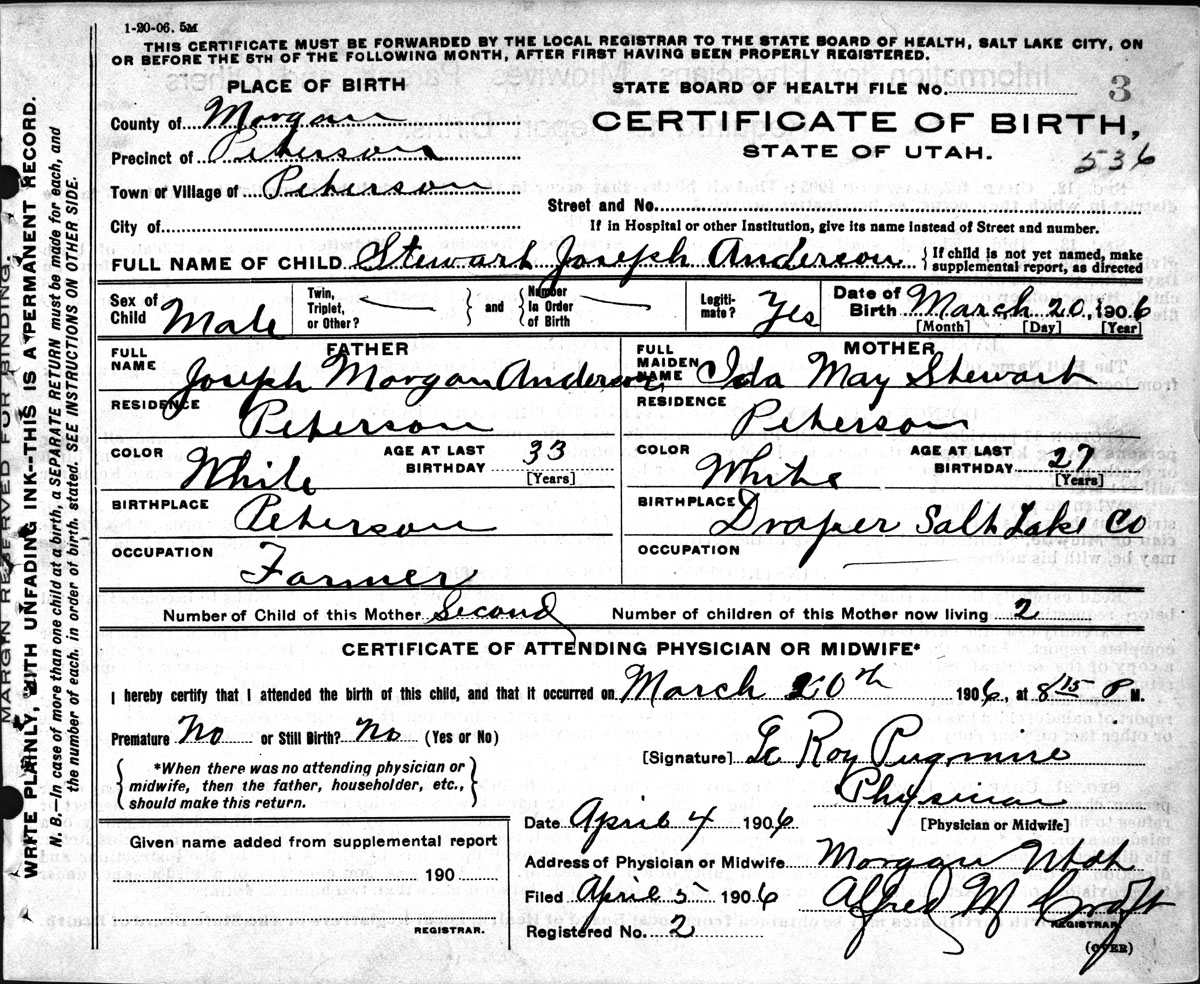 1-20-06. 5M
THIS CERTIFICATE MUST BE FORWARDED BY THE LOCAL REGISTRAR TO THE STATE BOARD OF HEALTH, SALT LAKE CITY, ON
OR BEFORE THE 5TH OF THE FOLLOWING MONTH, AFTER FIRST HAVING BEEN PROPERLY REGISTERED.
PLACE OF BIRTH
STATE BOARD OF HEALTH FILE No. 3
County of Morgan
CERTIFICATE OF BIRTH,
Precinct of Peterson
STATE OF UTAH.
536
Town or Village of Peterson
Street and No.
City of
If in Hospital or other Institution, give its name instead of Street and number.
FULL NAME OF CHILD Stewart Joseph Anderson { If child is not yet named, make
supplemental report, as directed
Sex of Child Male
Twin, Triplet, or Other? } and { Number in Order of Birth
Legitimate? Yes
Date of Birth March 20, 1906
[Month] [Day] [Year]
FATHER
FULL NAME Joseph Morgan Anderson
MOTHER
FULL MAIDEN NAME Ida May Stewart
RESIDENCE Peterson
RESIDENCE Peterson
COLOR White AGE AT LAST BIRTHDAY 33 [Years]
COLOR White AGE AT LAST BIRTHDAY 27 [Years]
BIRTHPLACE Peterson
BIRTHPLACE Draper Salt Lake Co
OCCUPATION Farmer
OCCUPATION
Number of Child of this Mother Second Number of children of this Mother now living 2
CERTIFICATE OF ATTENDING PHYSICIAN OR MIDWIFE*
I hereby certify that I attended the birth of this child, and that it occurred on March 20th 1906, at 8 15 P M.
Premature No or Still Birth? No (Yes or No)
[Signature] Le Roy Pugmire
{ *When there was no attending physician or
midwife, then the father, householder, etc.,
should make this return. }
Physician
[Physician or Midwife]
Date April 4 1906
Given name added from supplemental report
190
REGISTRAR.
Address of Physician or Midwife Morgan Utah
Filed April 5 1906 Alfred M Croft
REGISTRAR.
Registered No. 2
(OVER)
MARGIN RESERVED FOR BINDING.
WRITE PLAINLY, WITH UNFADING INK—THIS IS A PERMANENT RECORD.
N. B.—In case of more than one child at a birth, a SEPARATE RETURN must be made for each, and
the number of each, in order of birth, stated. SEE INSTRUCTIONS ON OTHER SIDE.